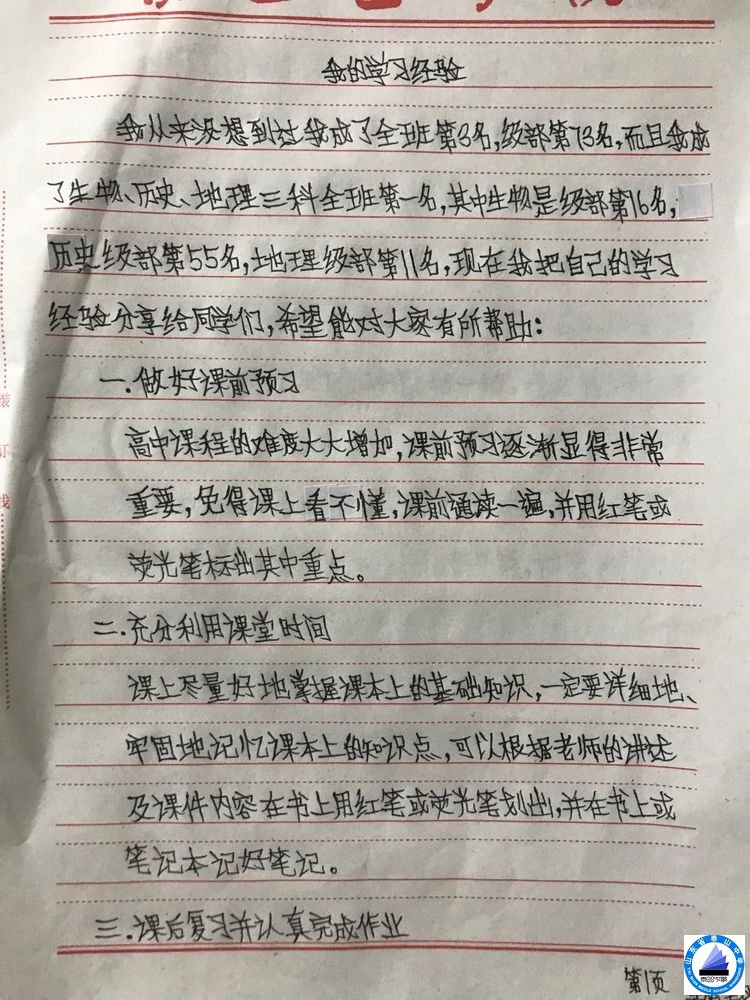 我的学习经验
我从来没想到过我成了全班第3名,级部第73名,而且我成
了生物、历史、地理三科全班第一名,其中生物是级部第16名,
历史级部第55名,地理级部第11名,现在我把自己的学习
经验分享给同学们,希望能对大家有所帮助:
一.做好课前预习
高中课程的难度大大增加,课前预习逐渐显得非常
重要,免得课上看不懂,课前通读一遍,并用红笔或
荧光笔标出其中重点。
二.充分利用课堂时间
课上尽量好地掌握课本上的基础知识,一定要详细地、
牢固地记忆课本上的知识点,可以根据老师的讲述
及课件内容在书上用红笔或荧光笔划出,并在书上或
笔记本记好笔记。
三.课后复习并认真完成作业
第1页
装
订
线
山东省泰山中学